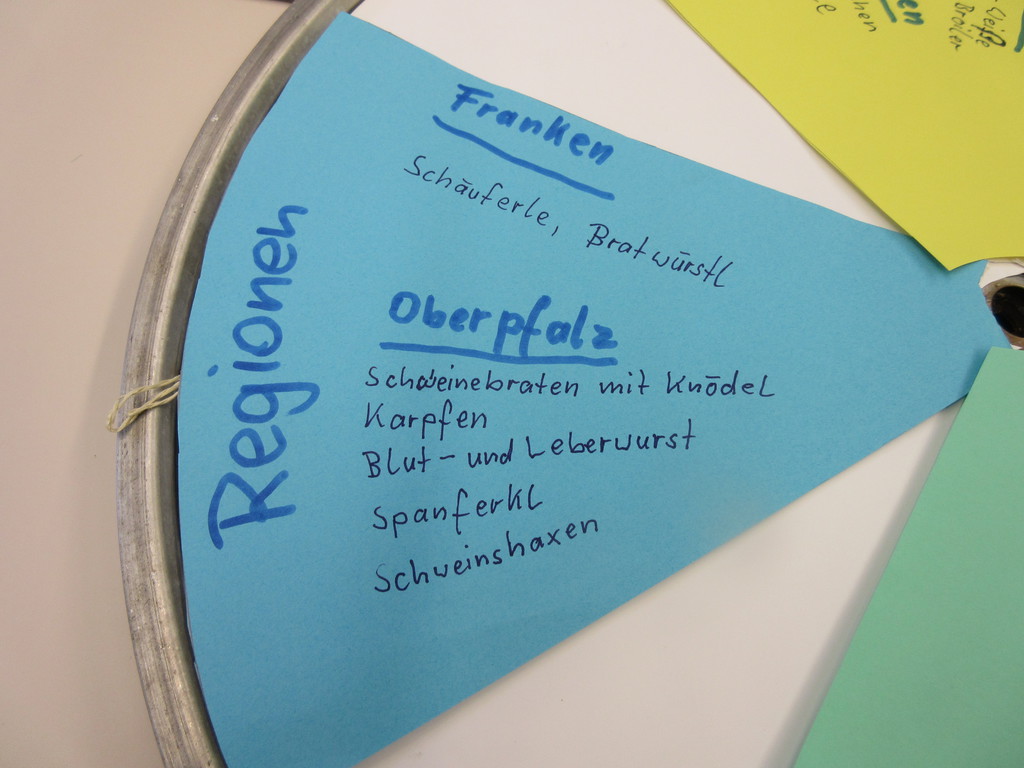 Regionen
Franken
Schäuferle, Bratwürstl
Oberpfalz
Schweinebraten mit Knödel
Karpfen
Blut- und Leberwurst
Spanferkl
Schweinshaxen
en
hen
e
Weiße
Broiler